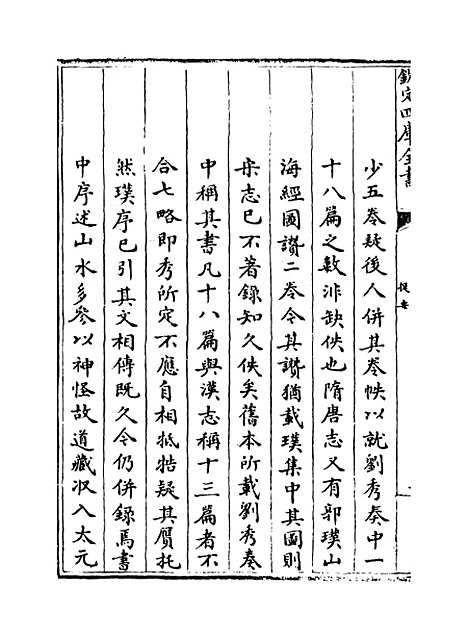 欽定四庫全書
提要
少五卷疑後人併其卷帙以就劉秀奏中一
十八篇之數非缺佚也隋唐志又有郭璞山
海經圖讚二卷今其讚猶載璞集中其圖則
宋志已不著錄知久佚矣舊本所載劉秀奏
中稱其書凡十八篇與漢志稱十三篇者不
合七略即秀所定不應自相牴牾疑其贋托
然璞序已引其文相傳既久今仍併錄焉書
中序述山水多參以神怪故道藏収入太元